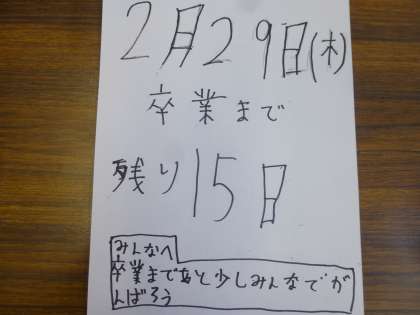 2月29日(木)
卒業まで
残り15日
みんなへ
卒業まであと少しみんなでが
んばろう